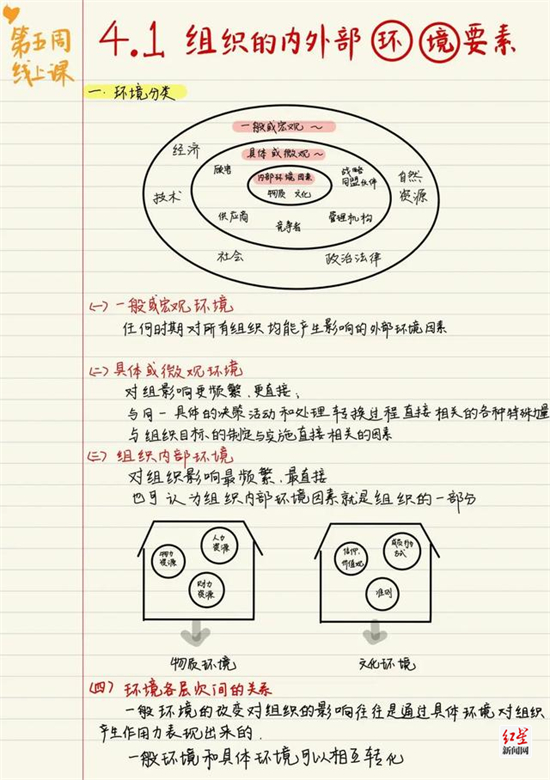 第五周
线上课
4.1 组织的内外部环境要素
一、环境分类
一般或宏观~
经济
具体或微观~
顾客
战略
同盟伙伴
自然
资源
内部环境因素
物质 文化
技术
供应商
竞争者
管理机构
社会
政治法律
(一)一般或宏观环境
任何时期对所有组织均能产生影响的外部环境因素
(二)具体或微观环境
对组影响更频繁、更直接,
与同一具体的决策活动和处理转换过程直接相关的各种特殊量
与组织目标的制定与实施直接相关的因素
(三)组织内部环境
对组织影响最频繁、最直接
也可认为组织内部环境因素就是组织的一部分
物力
资源
人力
资源
财力
资源
信仰、
价值观
方式
准则
物质环境
文化环境
(四)环境各层次间的关系
一般环境的改变对组织的影响往往是通过具体环境对组织
产生作用力表现出来的.
一般环境和具体环境可以相互转化
红星
新闻网